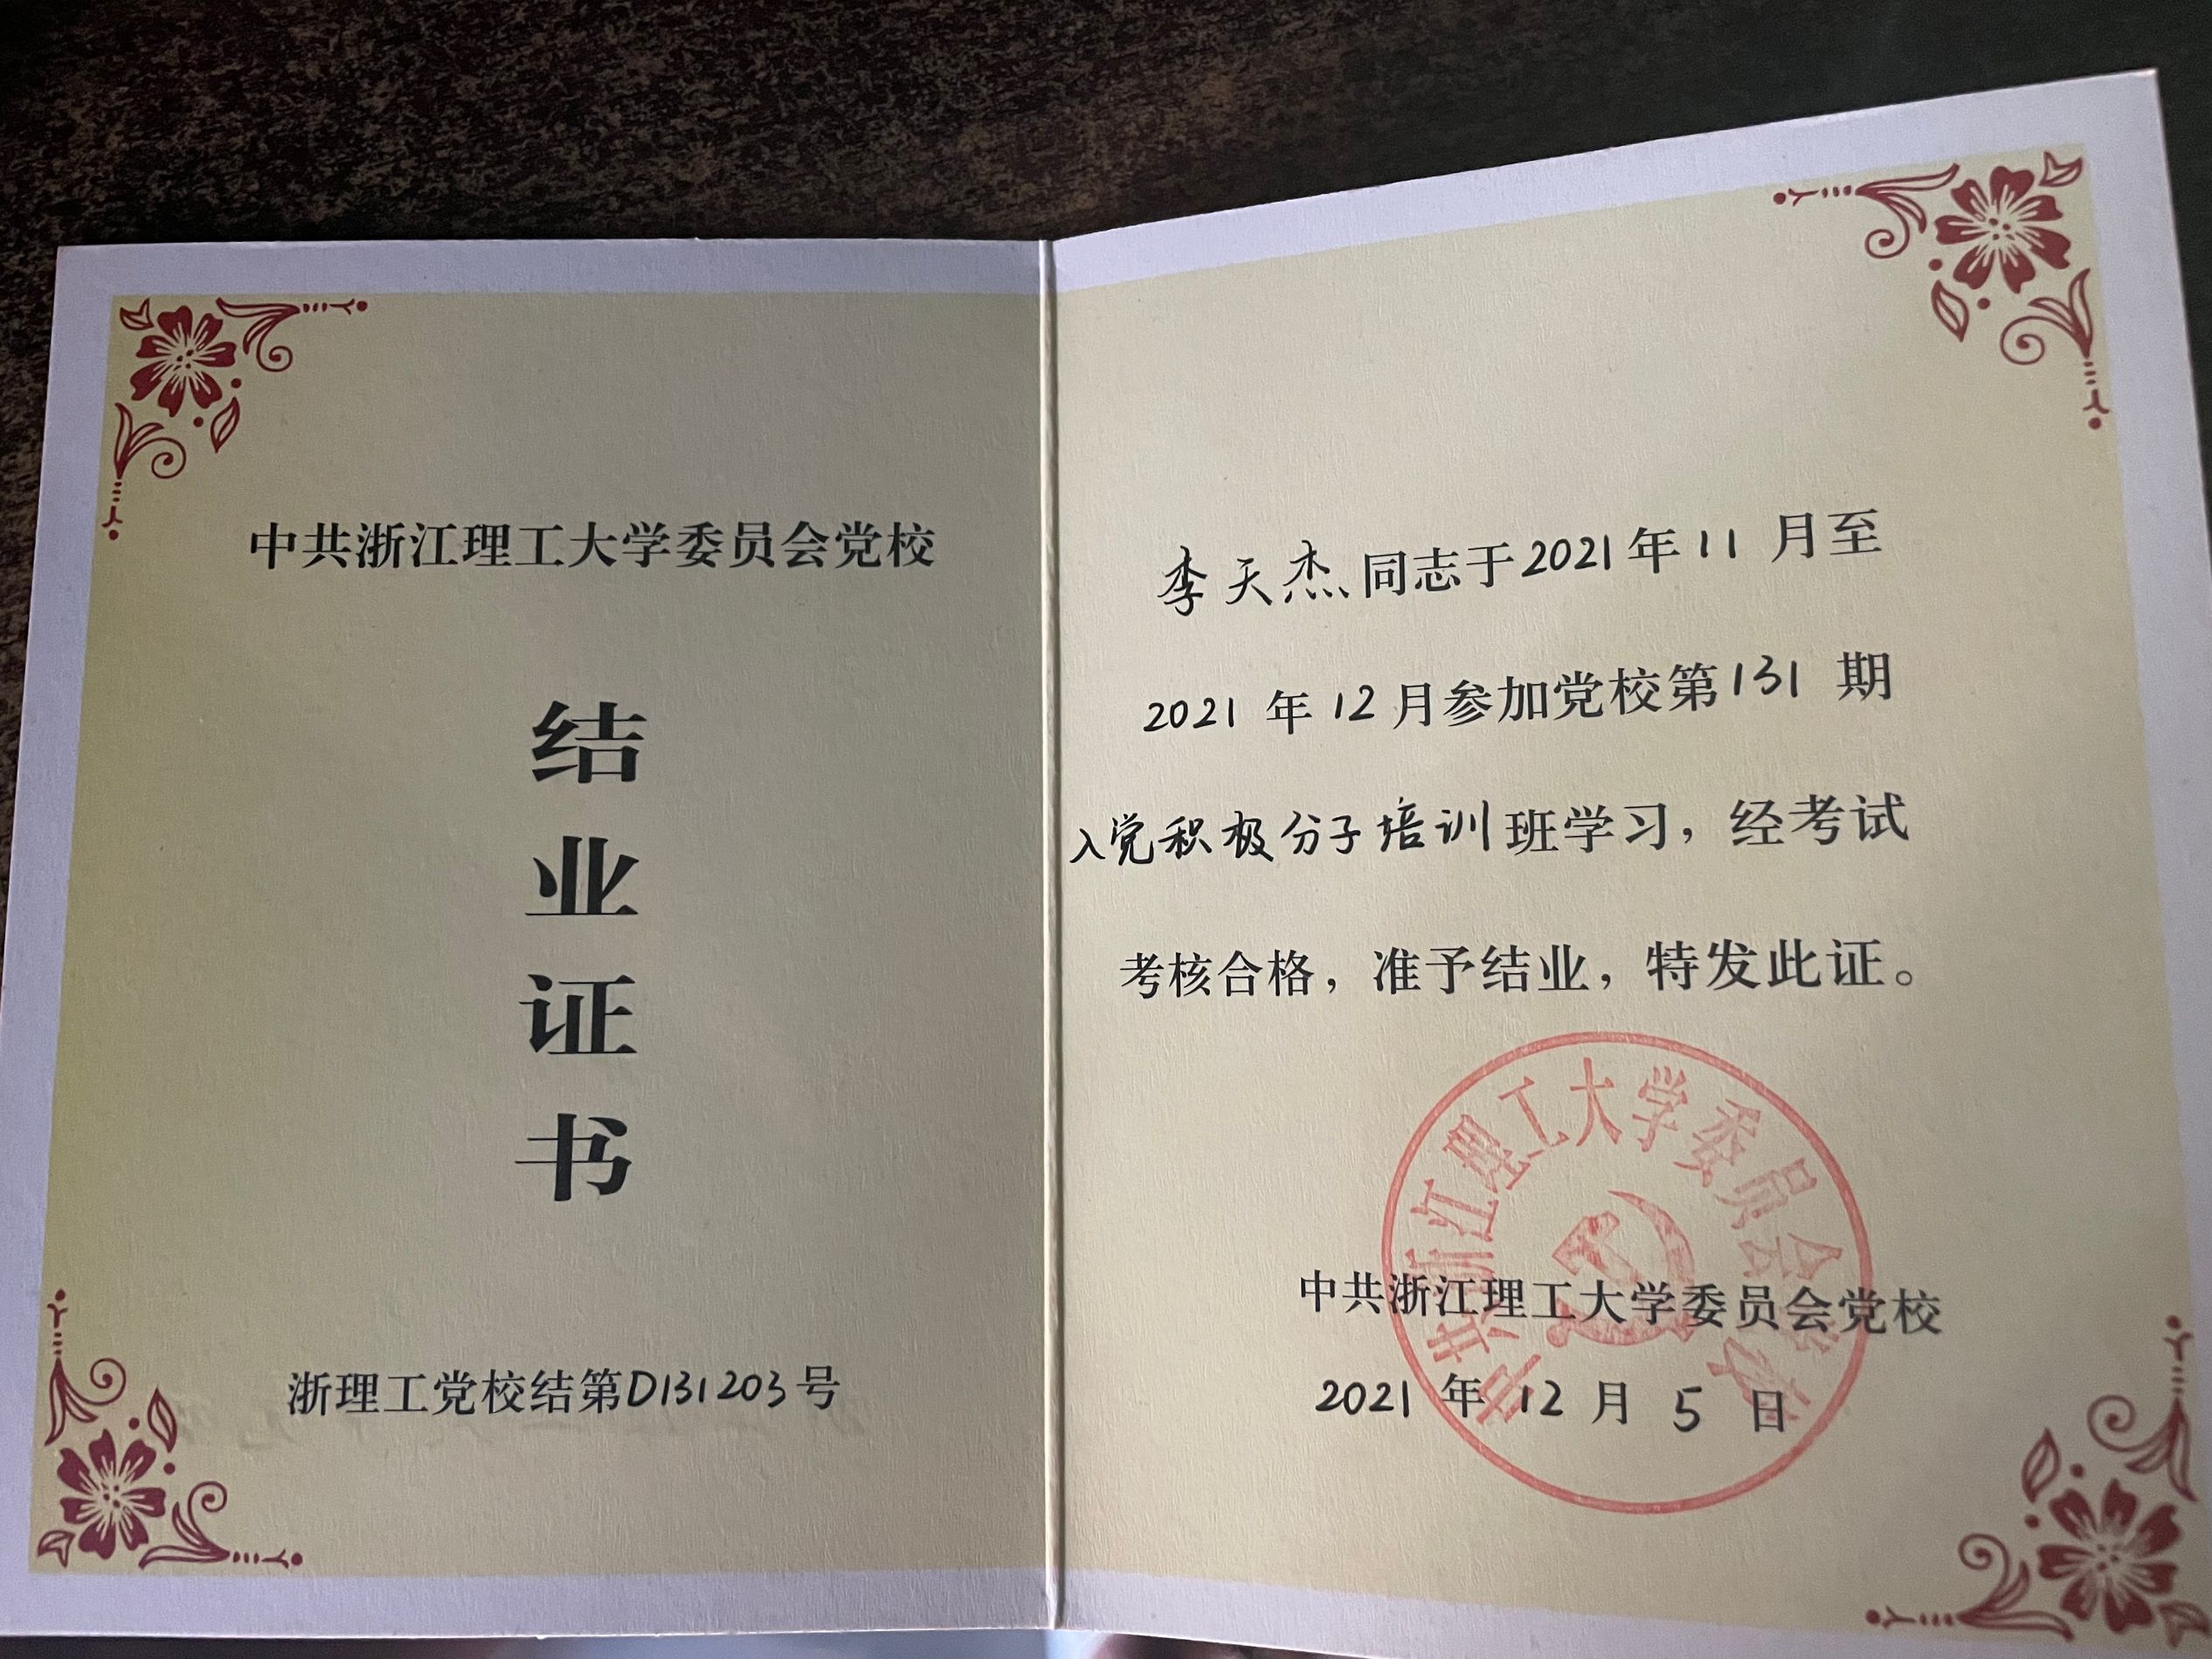 中共浙江理工大学委员会党校
结
业
证
书
浙理工党校结第D131203号
李天杰同志于2021年11月至
2021年12月参加党校第131期
入党积极分子培训班学习，经考试
考核合格，准予结业，特发此证。
中共浙江理工大学委员会党校
2021年12月5日
中共浙江理工大学委员会党校